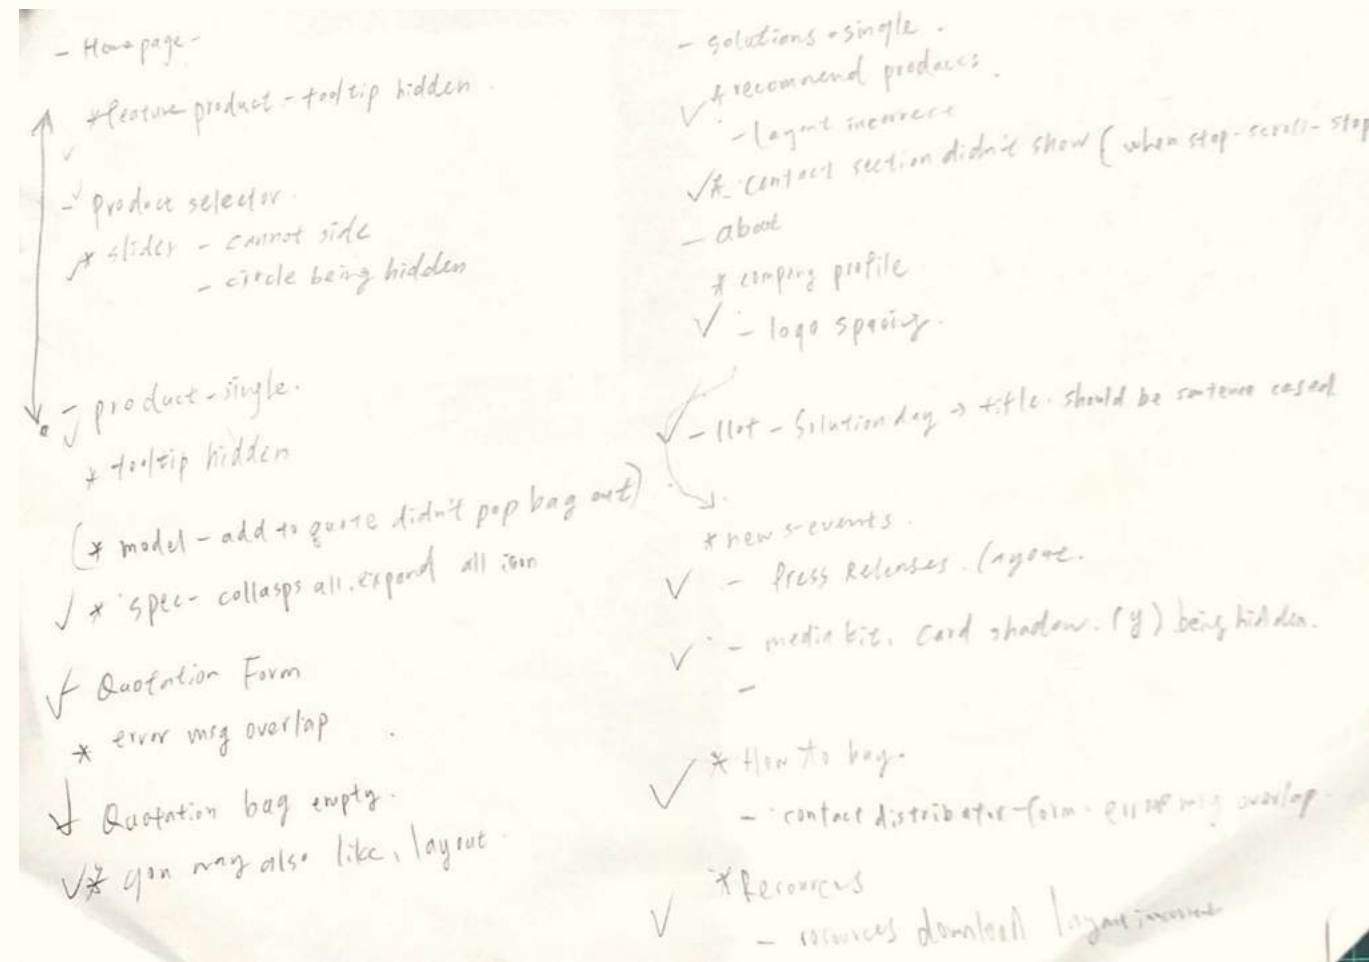 - Homepage -
* feature product - tooltip hidden.
- Product selector.
* slider - cannot side
- circle being hidden
- product - single.
* tooltip hidden
(* model - add to quote didn't pop bag out)
* spec - collasps all, expand all icon
- Quotation Form
* error msg overlap
- Quotation bag empty.
* you may also like, layout
- solutions - single.
* recommend products.
- layout incorrect
* contact section didn't show ( when stop-scroll-stop
- about
* company profile
- logo spacing.
- Solution day → title. should be sentence cased
* news-events.
- Press Releases. layout.
- media kit. Card shadow. (y) being hidden.
-
* How to buy.
- contact distributor-form. error msg overlap.
* Recources
- resources download layout incorrect